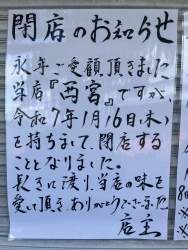 閉店のお知らせ
永年ご愛顧頂きました
当店『西宮』ですが、
令和7年1月16日(木)
を持ちまして、閉店する
こととなりました。
長きに渡り、当店の味を
愛して頂き、ありがとうございました
店主